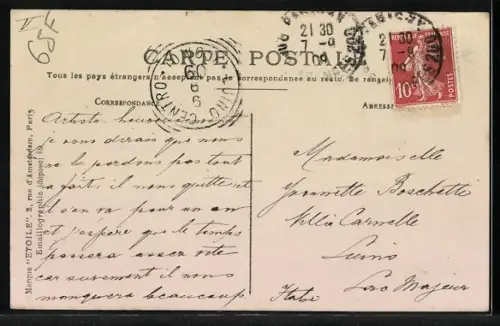 CARTE POSTALE
Tous les pays étrangers n'acceptent pas la correspondance au recto. Se renseigner
CORRESPONDANCE
ADRESSE
Artiste heureusement
je vous dirais que nous
ne le perdons pas tout
a fait, il nous quitte et
il s'en va pour un an
et j'espère que le temps
passera assez vite
car surement il nous
manquera beaucoup
Mademoiselle
Jeannette Boschetti
Villa Carmelle
Luino
Lac Majeur
Italie
Marque "ETOILE", 2, rue d'Amsterdam, Paris
Emaillographie (déposé)
21 30
7 -9
09
21 30
7 -9
09
CENTRO
10
POSTES